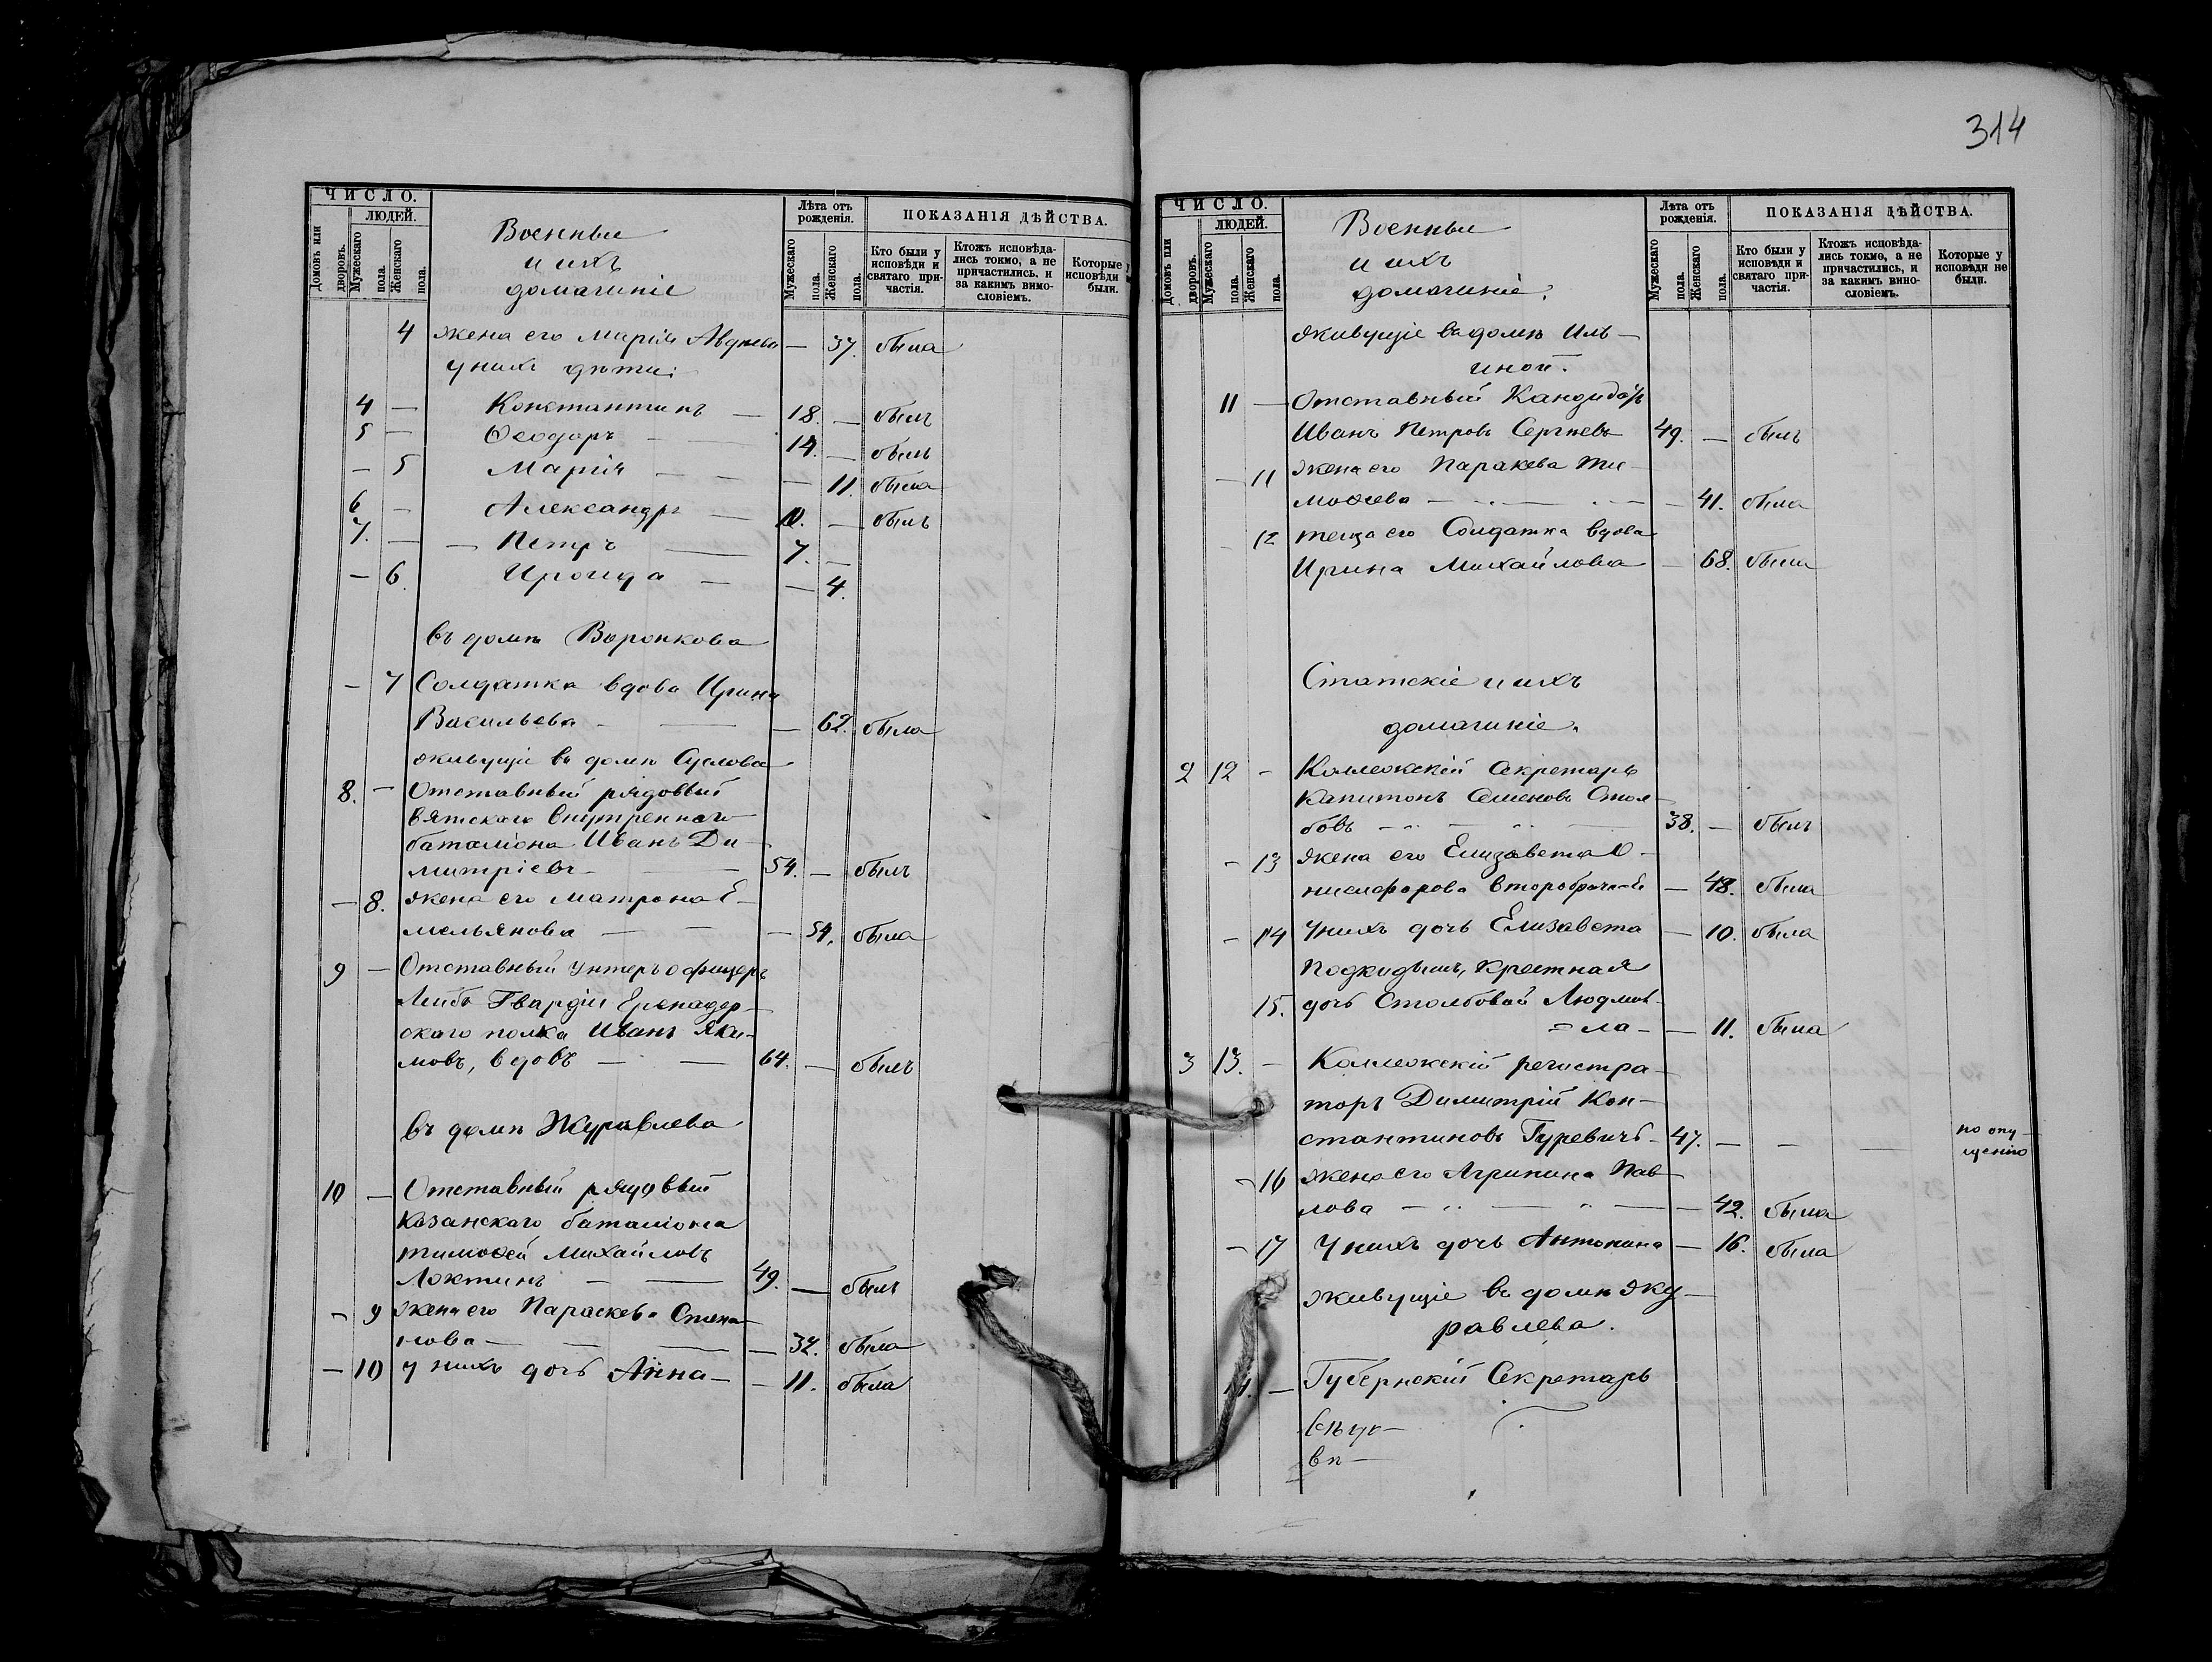 ЧИСЛО.
ЛЮДЕЙ.
Домовъ или дворовъ.
Мужескаго пола.
Женскаго пола.
Военные
и ихъ
домашніе
Лѣта отъ рожденія.
Мужескаго пола.
Женскаго пола.
ПОКАЗАНІЯ ДѢЙСТВА.
Кто были у исповѣди и святаго при-частія.
Ктожъ исповѣда-лись токмо, а не причастились, и за какимъ вино-словіемъ.
Которые у исповѣди были.
4 жена его Марія Авдѣева — 37. была
у нихъ дѣти:
4 — Константинъ — 18. — былъ
5 — Ѳеодоръ — 14. — былъ
— 5 Марія — — 11. была
6 — Александръ — 10. — былъ
7. — Петръ — 7. —
— 6. Ираида — — 4.
въ домѣ Воронкова
— 7 Солдатка вдова Ирина
Васильева — — 62. была
живущіе въ домѣ Суслова
8. — Отставный рядовый
Вятскаго внутренняго
баталіона Иванъ Ди-
митріевъ — 54. — былъ
— 8. жена его Матрона Е-
мельянова — — 54. была
9 — Отставный унтеръ офицеръ
Лейбъ Гвардіи Гренадер-
скаго полка Иванъ Яки-
мовъ, вдовъ — 64. — былъ
въ домѣ Журавлева
10 — Отставный рядовый
Казанскаго баталіона
Тимоѳей Михайловъ
Локтинъ — 49. — былъ
— 9 жена его Параскева Степа-
нова — — 32. была
— 10 у нихъ дочь Анна — — 11. была
314
ЧИСЛО.
ЛЮДЕЙ.
Домовъ или дворовъ.
Мужескаго пола.
Женскаго пола.
Военные
и ихъ
домашніе.
Лѣта отъ рожденія.
Мужескаго пола.
Женскаго пола.
ПОКАЗАНІЯ ДѢЙСТВА.
Кто были у исповѣди и святаго при-частія.
Ктожъ исповѣда-лись токмо, а не причастились, и за какимъ вино-словіемъ.
Которые у исповѣди не были.
живущіе въ домѣ Иль-
иной.
11 — Отставный
Иванъ Петровъ Сергѣевъ 49. — былъ
— 11 жена его Параскева Ти-
моѳеева — — 41. была
— 12 теща его Солдатка вдова
Ирина Михайлова — 68. была
Статскіе и ихъ
домашніе.
2 12 — Коллежскій Секретарь
Капитонъ Семеновъ Стол-
бовъ — 38. — былъ
— 13 жена его Елизавета О-
нисифорова второбрачная — 48. была
— 14 у нихъ дочь Елизавета — 10. была
Подкидышъ, крестная
15. дочь Столбовой Людми-
=ла — — 11. была
3 13. — Коллежскій регистра-
торъ Димитрій Кон-
стантиновъ Гуревичъ — 47. — — — по опу-
щенію
— 16 жена его Агрипина Пав-
лова — — 42. была
— 17 у нихъ дочь Антонина — 16. была
живущіе въ домѣ Жу-
равлева.
14. — Губернскій Секретарь